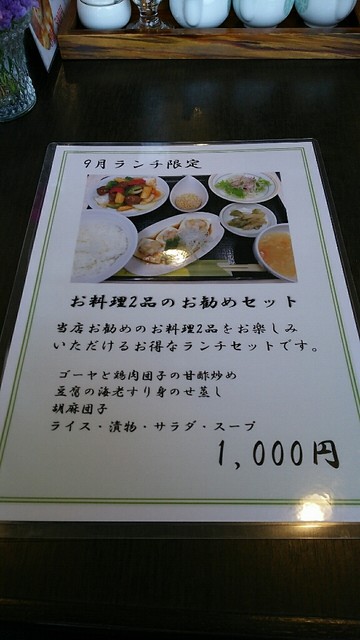 9月ランチ限定
お料理2品のお勧めセット
当店お勧めのお料理2品をお楽しみ
いただけるお得なランチセットです。
ゴーヤと鶏肉団子の甘酢炒め
豆腐の海老すり身のせ蒸し
胡麻団子
ライス・漬物・サラダ・スープ
1,000円